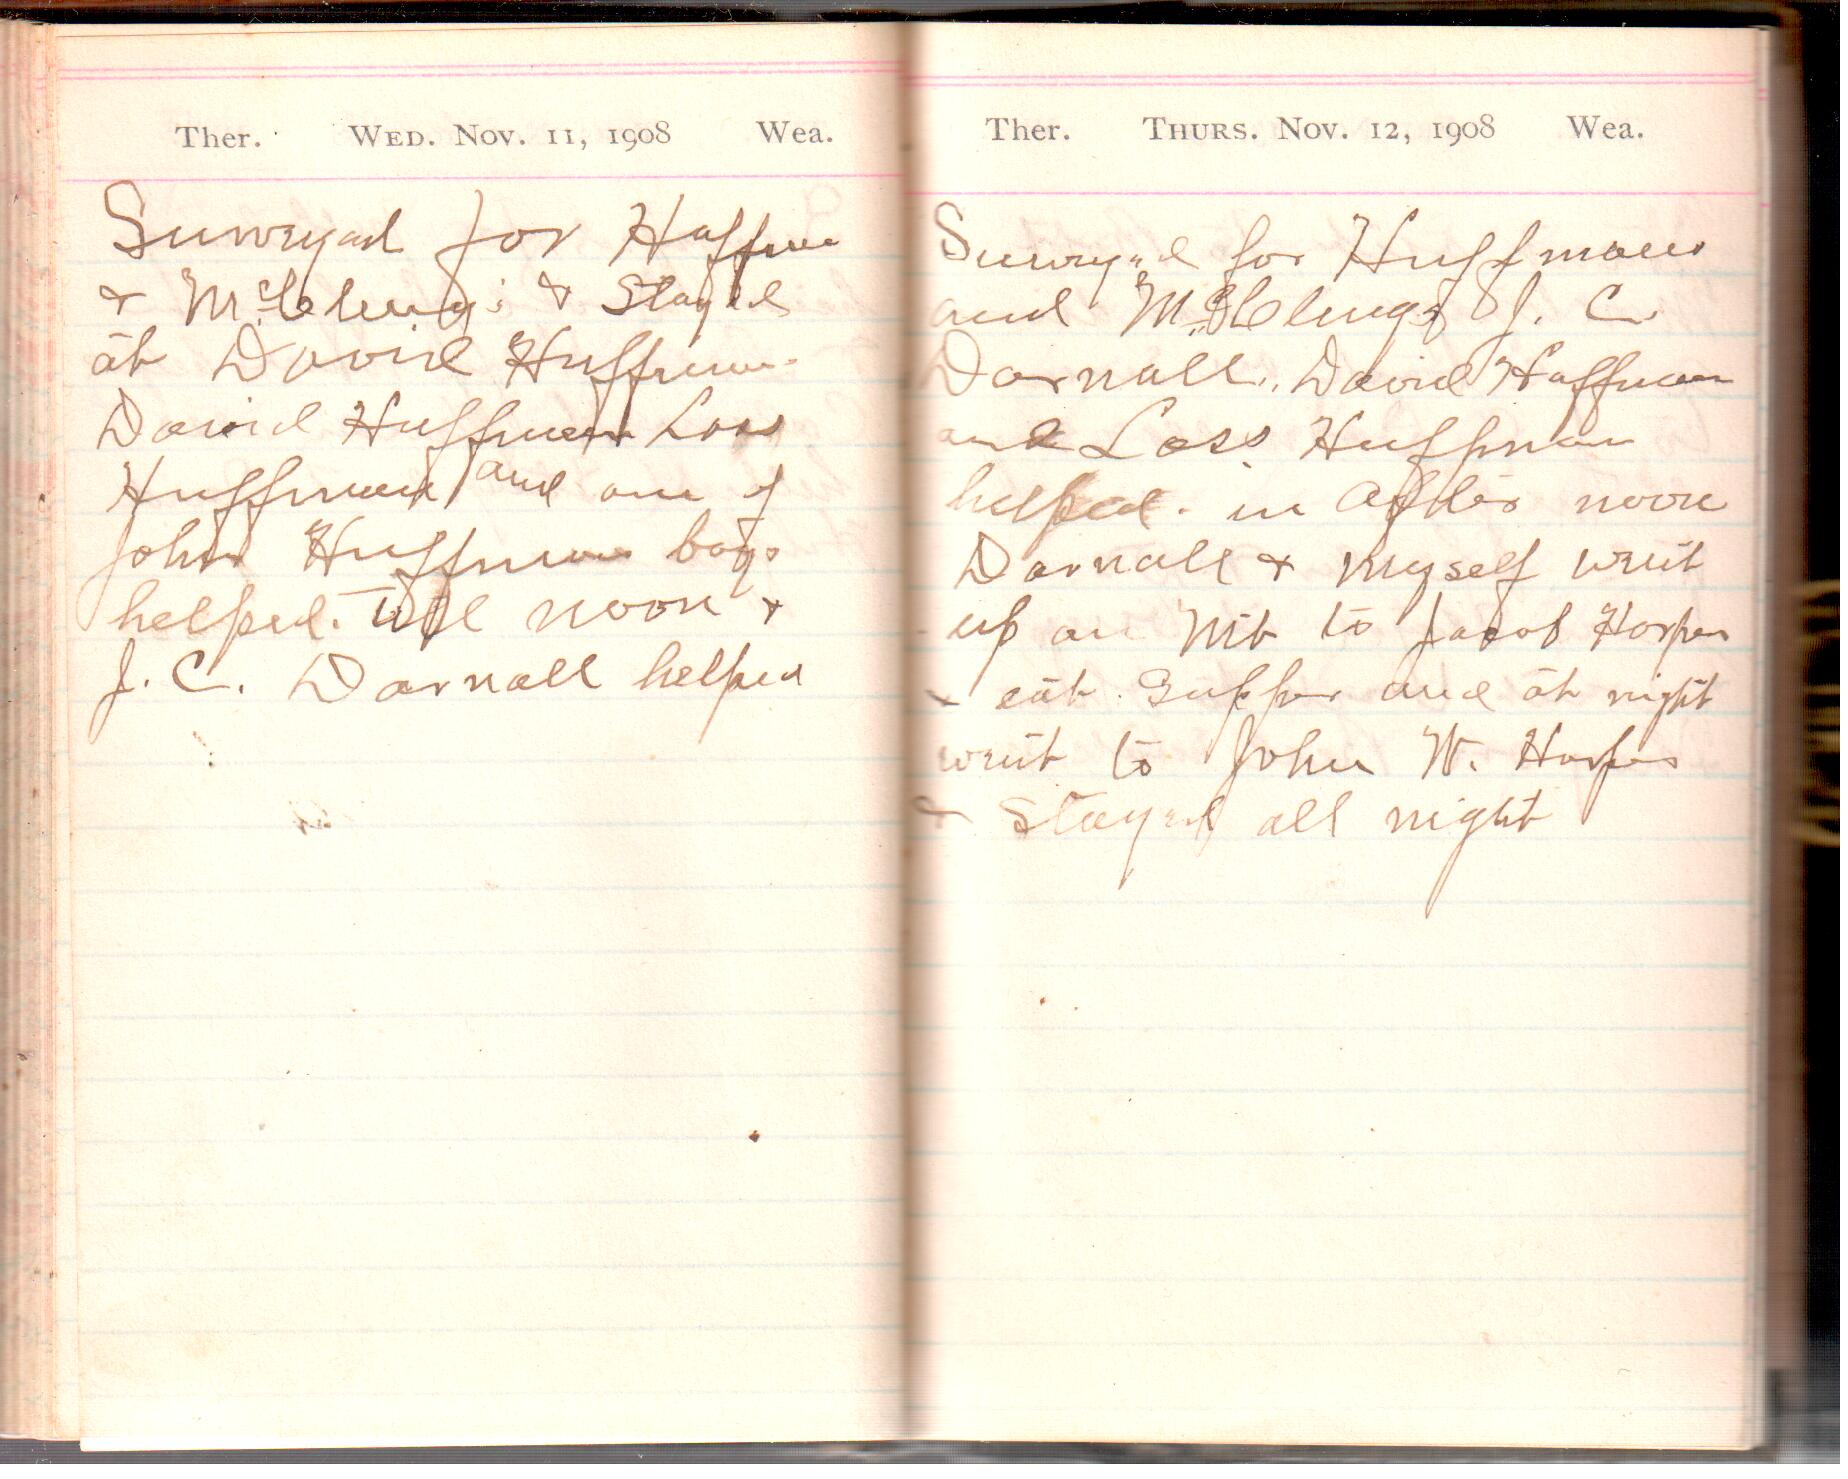 Ther. WED. NOV. 11, 1908 Wea.
Surveyed for Huffman
& McClungs & Stayed
at David Huffman
David Huffman Loss
Huffman and one of
John Huffman boys
helped. till noon &
J. C. Darnall helped
Ther. THURS. NOV. 12, 1908 Wea.
Surveyed for Huffmans
and McClungs J. C.
Darnall, David Huffman
and Loss Huffman
helped. in after noon
Darnall & myself went
up on Mt to Jacob Harper
& eat Supper and at night
went to John W. Harpers
& Stayed all night